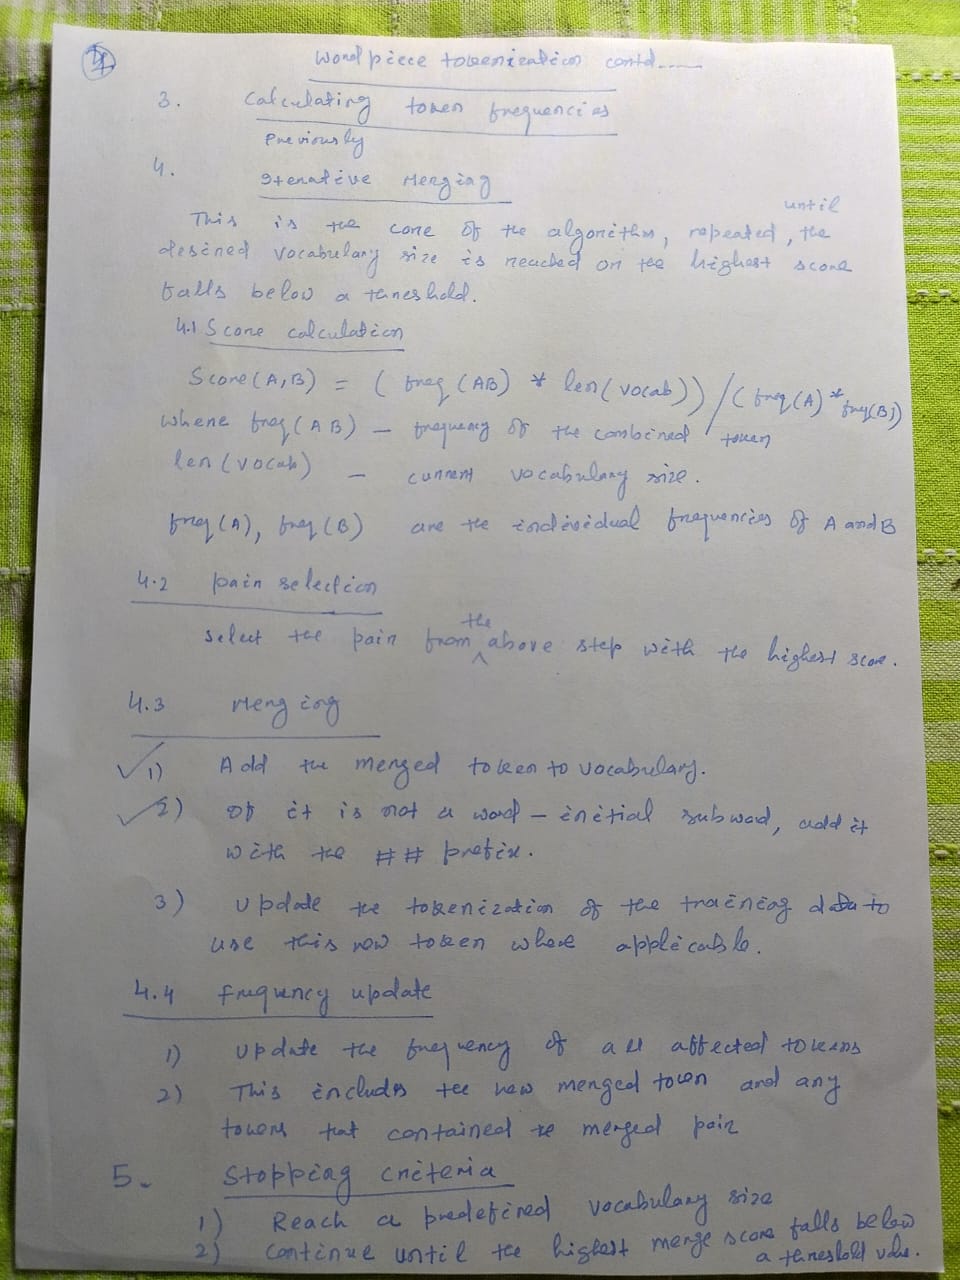 Wordpiece tokenization contd.....
3. Calculating token frequencies
Previously
4. Iterative Merging
This is the core of the algorithm, repeated, until the
desired vocabulary size is reached or the highest score
falls below a threshold.
4.1 Score calculation
Score(A,B) = ( freq (AB) * len(vocab)) / ( freq(A) * freq(B))
where freq(AB) – frequency of the combined token
len(vocab) – current vocabulary size.
freq(A), freq(B) are the individual frequencies of A and B
4.2 pair selection
select the pair from the above step with the highest score.
4.3 Merging
1) Add the merged token to vocabulary.
2) If it is not a word – initial subword, add it
with the ## prefix.
3) Update the tokenization of the training data to
use this new token where applicable.
4.4 frequency update
1) Update the frequency of all affected tokens
2) This includes the new merged token and any
tokens that contained the merged pair
5. Stopping criteria
1) Reach a predefined vocabulary size
2) Continue until the highest merge score falls below
a threshold value.